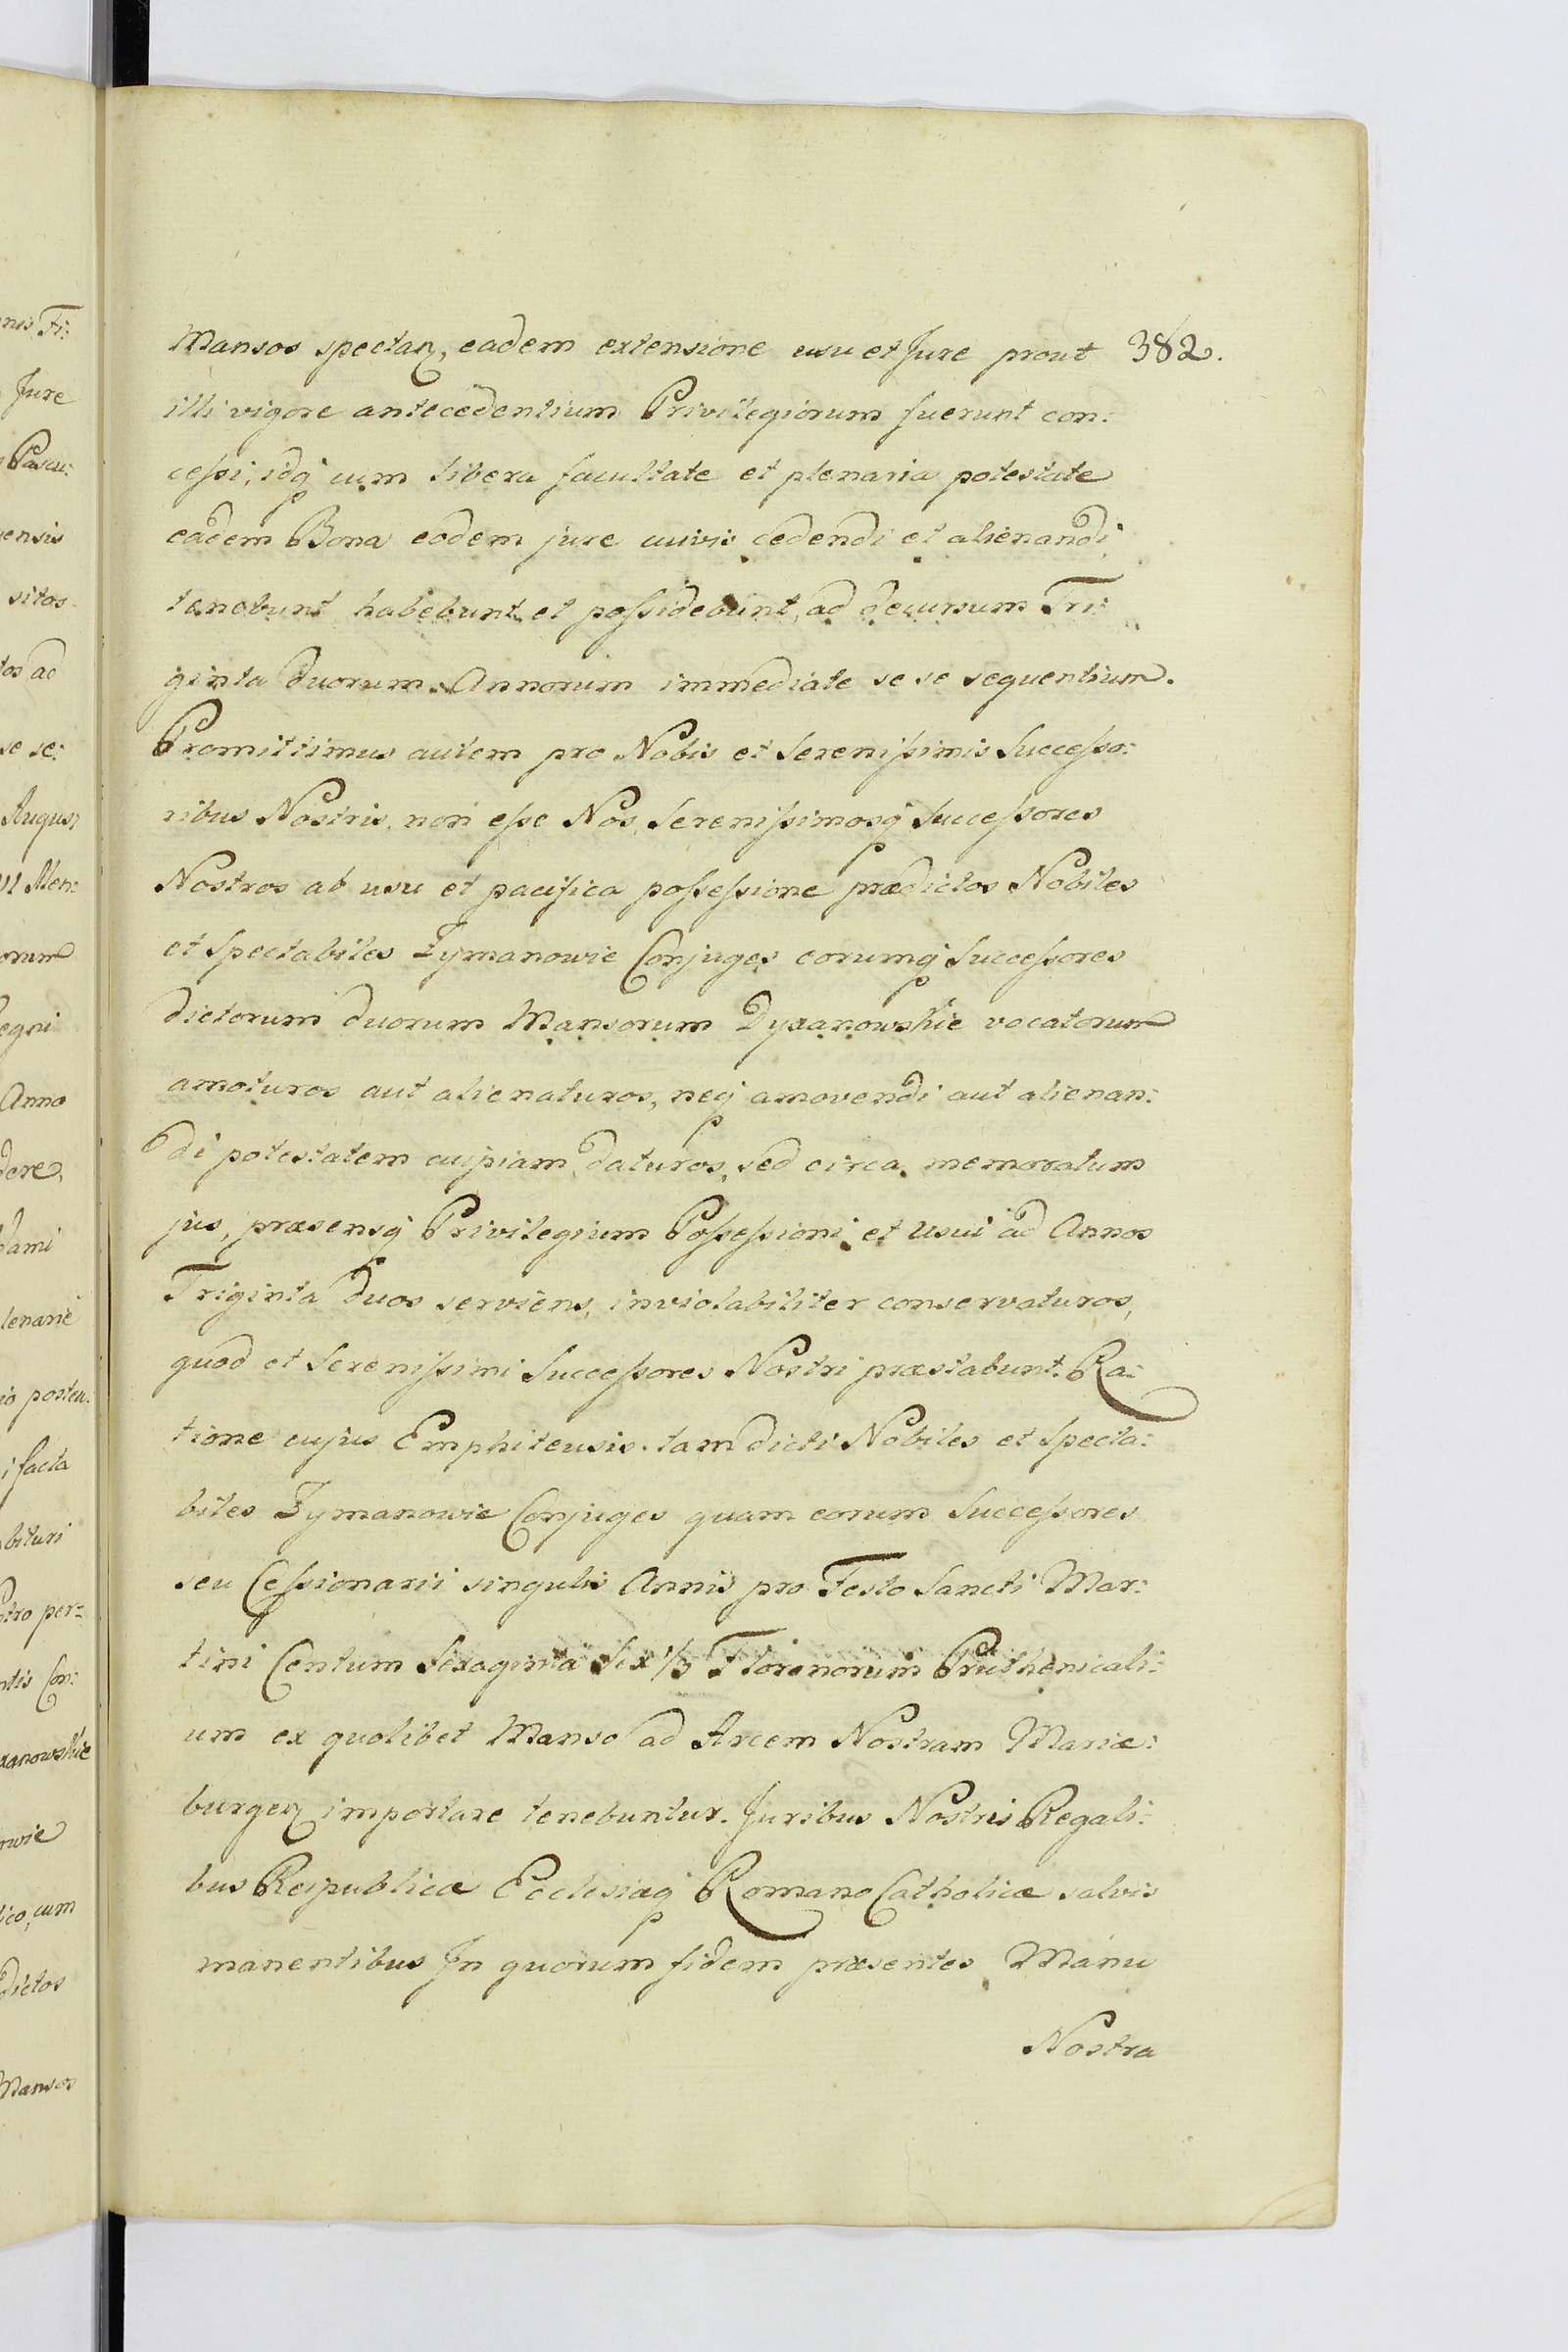 Mansos spectan, eadem extensione usu et Jure prout 382.
illi vigore antecedentium Privilegiorum fuerunt con:
cessi, idq cum libera facultate et plenaria potestate
eadem Bona eodem jure cuivis cedendi et alienandi
tenebunt habebunt et possidebunt, ad decursum Tri:
ginta duorum Annorum immediate se se sequentium.
Promittimus autem pro Nobis et Serenissimis Successo:
ribus Nostris, non esse Nos, Serenissimosq Successores
Nostros ab usu et pacifica possessione prædictos Nobiles
et Spectabiles Zymanowie Conjuges eorumq Successores
dictorum duorum Mansorum Dyxanowskie vocatorum
amoturos aut alienaturos, neq amovendi aut alienan:
di potestatem cuipiam daturos, sed circa memoratum
jus, præsensq Privilegium Possessioni et Usui ad Annos
Triginta duos serviens, inviolabiliter conservaturos,
quod et Serenissimi Successores Nostri præstabunt. Ra:
tione cujus Emphiteusis tam dicti Nobiles et Specta:
biles Zymanowie Conjuges quam eorum Successores
seu Cessionarii singulis Annis pro Festo Sancti Mar:
tini Centum Sexaginta Sex 1/3 Florenorum Pruthenicali:
um ex quolibet Manso ad Arcem Nostram Mariæ:
burgen importare tenebuntur. Juribus Nostris Regali:
bus Reipublicæ Ecclesiæq Romano Catholicæ salvis
manentibus Jn quorum fidem præsentes Manu
Nostra